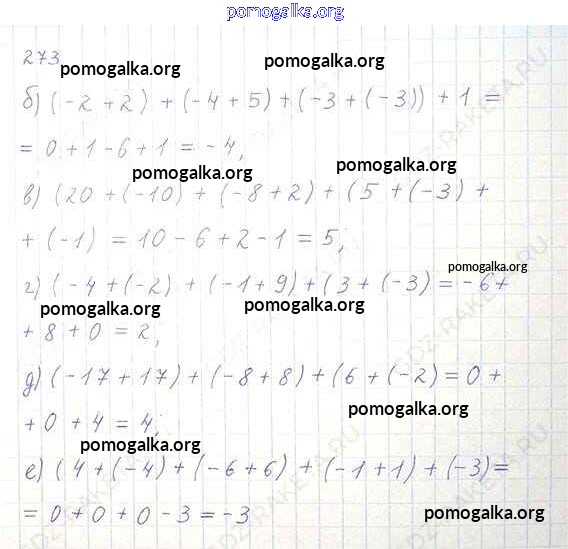 pomogalka.org
273
pomogalka.org pomogalka.org
б) (-2 + 2) + (-4 + 5) + (-3 + (-3)) + 1 =
= 0 + 1 - 6 + 1 = -4,
pomogalka.org pomogalka.org
в) (20 + (-10) + (-8 + 2) + (5 + (-3) +
+ (-1) = 10 - 6 + 2 - 1 = 5,
pomogalka.org
г) (-4 + (-2) + (-1 + 9) + (3 + (-3) = -6 +
pomogalka.org pomogalka.org
+ 8 + 0 = 2,
д) (-17 + 17) + (-8 + 8) + (6 + (-2) = 0 +
pomogalka.org
+ 0 + 4 = 4,
pomogalka.org
е) (4 + (-4) + (-6 + 6) + (-1 + 1) + (-3) =
= 0 + 0 + 0 - 3 = -3
pomogalka.org